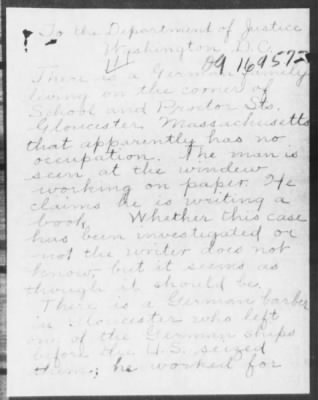 To the Department of Justice
Washington D.C.
OG 169573
There is a German family
living on the corner of
School and Proctor Sts.
Gloucester Massachusetts
that apparently has no
occupation. The man is
seen at the window
working on paper. He
claims he is writing a
book. Whether this case
has been investigated or
not the writer does not
know, but it seems as
though it should be.
There is a German barber
in Gloucester who left
one of the German ships
before the U.S. seized
them; he worked for